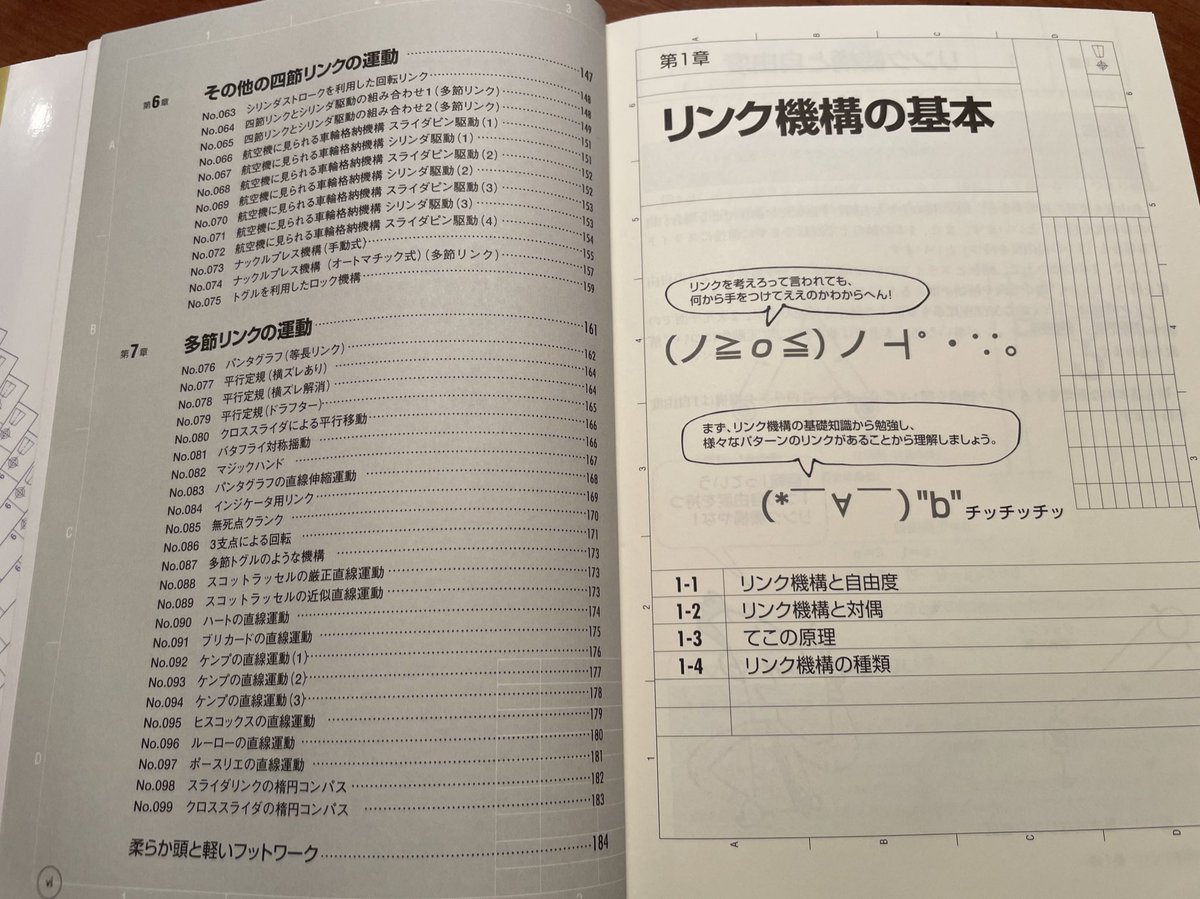 第6章 その他の四節リンクの運動 147
No.063 シリンダストロークを利用した回転リンク 148
No.064 四節リンクとシリンダ駆動の組み合わせ1(多節リンク) 148
No.065 四節リンクとシリンダ駆動の組み合わせ2(多節リンク) 149
No.066 航空機に見られる車輪格納機構 スライダピン駆動(1) 151
No.067 航空機に見られる車輪格納機構 シリンダ駆動(1) 151
No.068 航空機に見られる車輪格納機構 スライダピン駆動(2) 152
No.069 航空機に見られる車輪格納機構 シリンダ駆動(2) 152
No.070 航空機に見られる車輪格納機構 スライダピン駆動(3) 153
No.071 航空機に見られる車輪格納機構 シリンダ駆動(3) 153
No.072 航空機に見られる車輪格納機構 スライダピン駆動(4) 154
No.073 ナックルプレス機構(手動式) 155
No.074 ナックルプレス機構 (オートマチック式)(多節リンク) 157
No.075 トグルを利用したロック機構 159
第7章 多節リンクの運動 161
No.076 パンタグラフ(等長リンク) 162
No.077 平行定規(横ズレあり) 164
No.078 平行定規(横ズレ解消) 164
No.079 平行定規(ドラフター) 165
No.080 クロススライダによる平行移動 166
No.081 バタフライ対称揺動 166
No.082 マジックハンド 167
No.083 パンタグラフの直線伸縮運動 168
No.084 インジケータ用リンク 169
No.085 無死点クランク 170
No.086 3支点による回転 171
No.087 多節トグルのような機構 173
No.088 スコットラッセルの厳正直線運動 173
No.089 スコットラッセルの近似直線運動 173
No.090 ハートの直線運動 174
No.091 ブリカードの直線運動 175
No.092 ケンプの直線運動(1) 176
No.093 ケンプの直線運動(2) 177
No.094 ケンプの直線運動(3) 178
No.095 ヒスコックスの直線運動 179
No.096 ルーローの直線運動 180
No.097 ポースリエの直線運動 181
No.098 スライダリンクの楕円コンパス 182
No.099 クロススライダの楕円コンパス 183
柔らか頭と軽いフットワーク 184
vi
第1章
リンク機構の基本
リンクを考えろって言われても、
何から手をつけてええのかわからへん!
(ノ≧o≦)ノ ┤゜・∵。
まず、リンク機構の基礎知識から勉強し、
様々なパターンのリンクがあることから理解しましょう。
(*￣∀￣)"b" チッチッチッ
1-1 リンク機構と自由度
1-2 リンク機構と対偶
1-3 てこの原理
1-4 リンク機構の種類